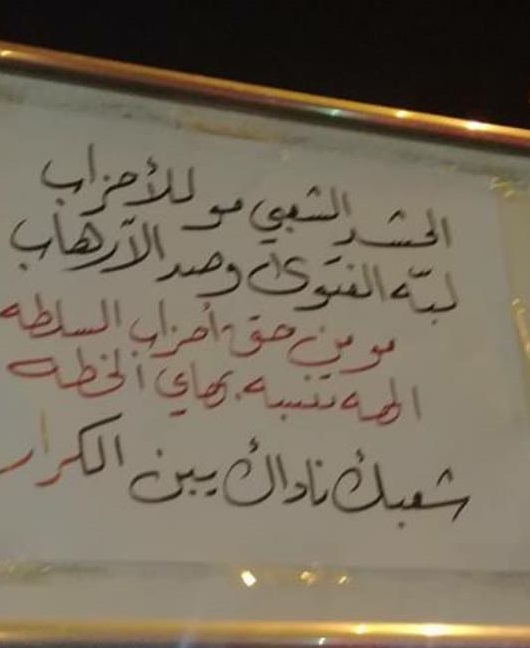 الحشد الشعبي مو للأحزاب
لبّه الفتوى وصد الارهاب
مو من حق أحزاب السلطه
الهه تنسبه بهاي الخطه
شعبك ناداك يبن الكرار